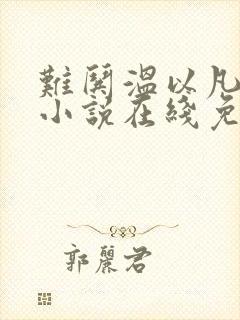 難鬨溫以凡
小說在綫免
郭麗君